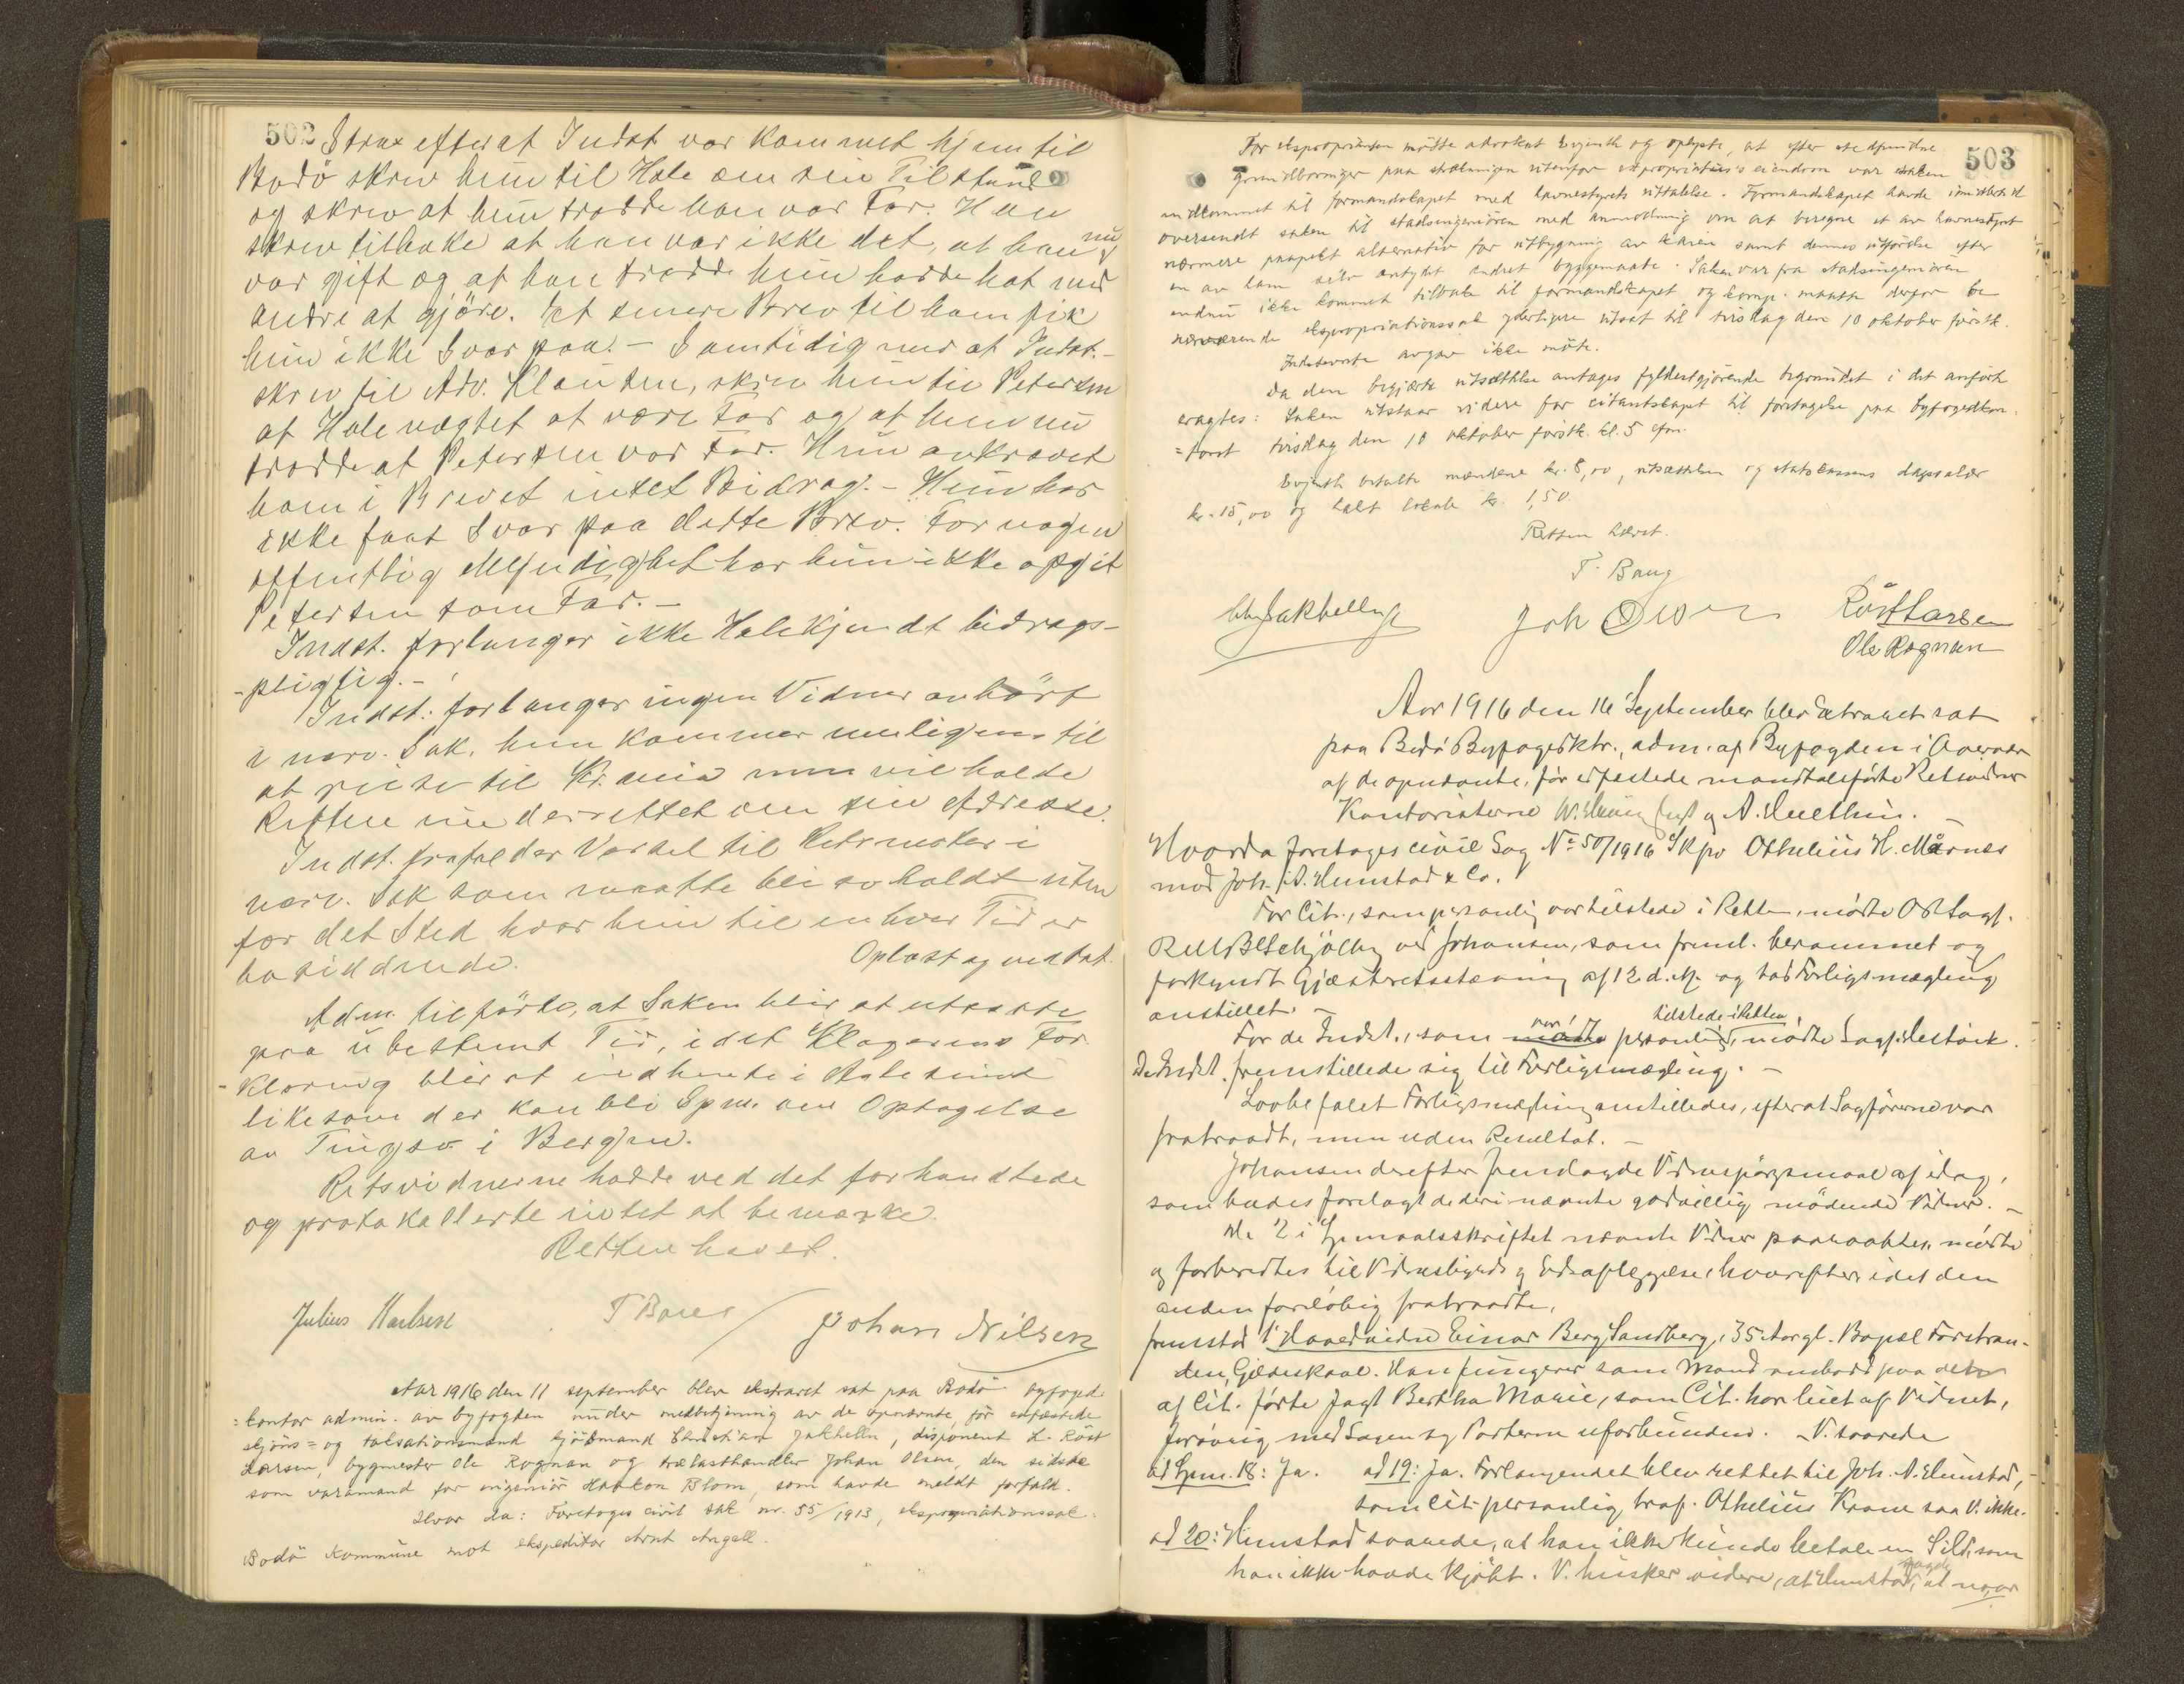 502
Strax efterat Indst var kommet hjem til
Bodö skrev hun til Hole om sin Tilstand
og skrev at hun trodde han var Far. Han
skrev tilbake at han var ikke det, at han nu
var gift og at han trodde hun hadde hat med
andre at gjöre. Et senere Brev til ham fik
hun ikke Svar paa. – Samtidig med at Indst.
skrev til Adv. Klausen, skrev hun til Petersen
at Hole nægtet at være Far og at hun nu
trodde at Petersen var Far. Hun avkrævet
ham i Brevet intet Bidrag. – Hun har
ikke faat Svar paa dette Brev. For nogen
offentlig Myndighet har hun ikke opgit
Petersen som Far. –
Indst. forlanger ikke Hole kjendt bidrags-
-pligtig. –
Indst. forlanger ingen Vidner avhört
i nærv. Sak, hun kommer muligens til
at reise til Kr.ania men vil holde
Retten underrettet om sin Adresse.
Indst. frafalder Varsel til Retsmöter i
nærv. Sak som maatte bli avholdt uten
for det Sted hvor hun til enhver Tid er
bosiddende.
Oplæst og vedtat.
Adm. tilförte, at Saken blir at utsætte
paa ubestemt Tid, idet Klagerens For
-klaring blir at indhente i
likesom der kan bli Spm. om Optagelse
av Tingsv i Bergen.
Retsvidnerne hadde ved det forhandlede
og protokollerte intet at bemærke.
Retten hævet.
Julius Karlsen T Baug Johan Nilsen
Aar 1916 den 11 september blev ekstraret sat paa Bodö byfoged-
=kontor admin. av byfogden under medbetjening av de opnævnte, för edfæstede
skjöns= og taksationsmænd kjöbmand Christian Jakhelln, disponent L. Röst
Larsen, bygmester Ole Rognan og trælasthandler Johan Olsen, den sidste
som varamand for ingeniör Haakon Blom, som havde meldt forfald.
Hvor da: Foretoges civil sak nr. 55/1913, ekspropriationssak:
Bodö Kommune mot ekspeditör Arnt Angell.
503
For eksproprianten mötte advokat Evjenth og oplyste, at efter stedfundne
grundboringer paa strækningen utenfor ekspropriatus's eiendom var saken
indkommet til formandskapet med havnestyrets uttalelse. Formandskapet havde imidlertid
oversendt saken til stadsingeniören med anmodning om at beregne et av havnestyret
nærmere paapekt alternativ for utbygning av kaien samt dennes utförelse efter
en av ham selv antydet endret byggemaate. Saken var fra stadsingeniören
endnu ikke kommet tilbake til formandskapet, og komp. maatte derfor be
nærværende ekspropriationssak ytterligere utsat til tirsdag den 10 oktober förstk.
Indstevnte avgav ikke möte.
Da den begjærte utsættelse antages fyldestgjörende begrundet i det anförte
eragtes: Saken utstaar videre for citantskapet til foretagelse paa byfogedkon-
=toret tirsdag den 10 oktober förstk. kl. 5 efm.
Evjenth betalte mændene kr. 8,00, utsættelsen og statskassens dagssalær
kr. 15,00 og halt lokale kr. 1,50.
Retten hævet.
T. Baug
Chr Jakhelln Joh Olsen Röst Larsen
Ole Rognan
Aar 1916 den 16 September blev Extraret sat
paa Bodö Byfogedktr., adm. af Byfogden i Overvær
af de opnævnte, för edfæstede mandtalsförte Retsvidner
Kontoristerne og A. Multhin. –
Hvorda foretoges civil Sag No 50/1916 Skpr Othelius H. Mårnes
mod Joh. A. Hunstad & Co.
For Cit., som personlig var tilstede i Retten, mödte ORSagf.
Schjölby ved Johansen, som freml. berammet og
forkyndt Gjæsteretsstævning af 12 d. M. og bad Forligsmægling
anstillet. –
For de Indst., som mödte var personlig tilstede i Retten, mödte Sagf.
De Indst. fremstillede sig til Forligsmægling. –
Lovbefalet Forligsmægling anstilledes, efterat Sagförerne var
fratraadt, men uden Resultat. –
Johansen derefter fremlagde Vidnespörgsmaal af idag,
som bades forelagt de deri nævnte godvillig mödende Vidner. –
De 2 i Spmaalsskriftet nævnte Vidner paaraabtes, mödte
og forberedtes til Vidnesbyrds og Eds aflæggelse, hvorefter, idet den
anden foreløbig fratraadte,
fremstod 1. Hovedvidne Einar Berg Sandberg, 35 Aar gl. Bopæl Forstran-
den, Gjæslskaal. Han fungerer som Mand ombord paa den
af Cit. förte Jagt Bertha Marie, som Cit. har leiet af Vidnet,
forövrig med Sagen og Parterne uforbunden. – V. svarede
ad Spm. 18: Ja. ad 19: Ja. Forlangendet blev rettet til Joh. A. Hunstad,
som Cit. personlig traf. Othelius Krane saa V. ikke.
ad 20: Hunstad svarede, at han ikke kunde betale en Sild, som
han ikke havde kjöbt. V. husker videre, at Hunstad sagde, at naar